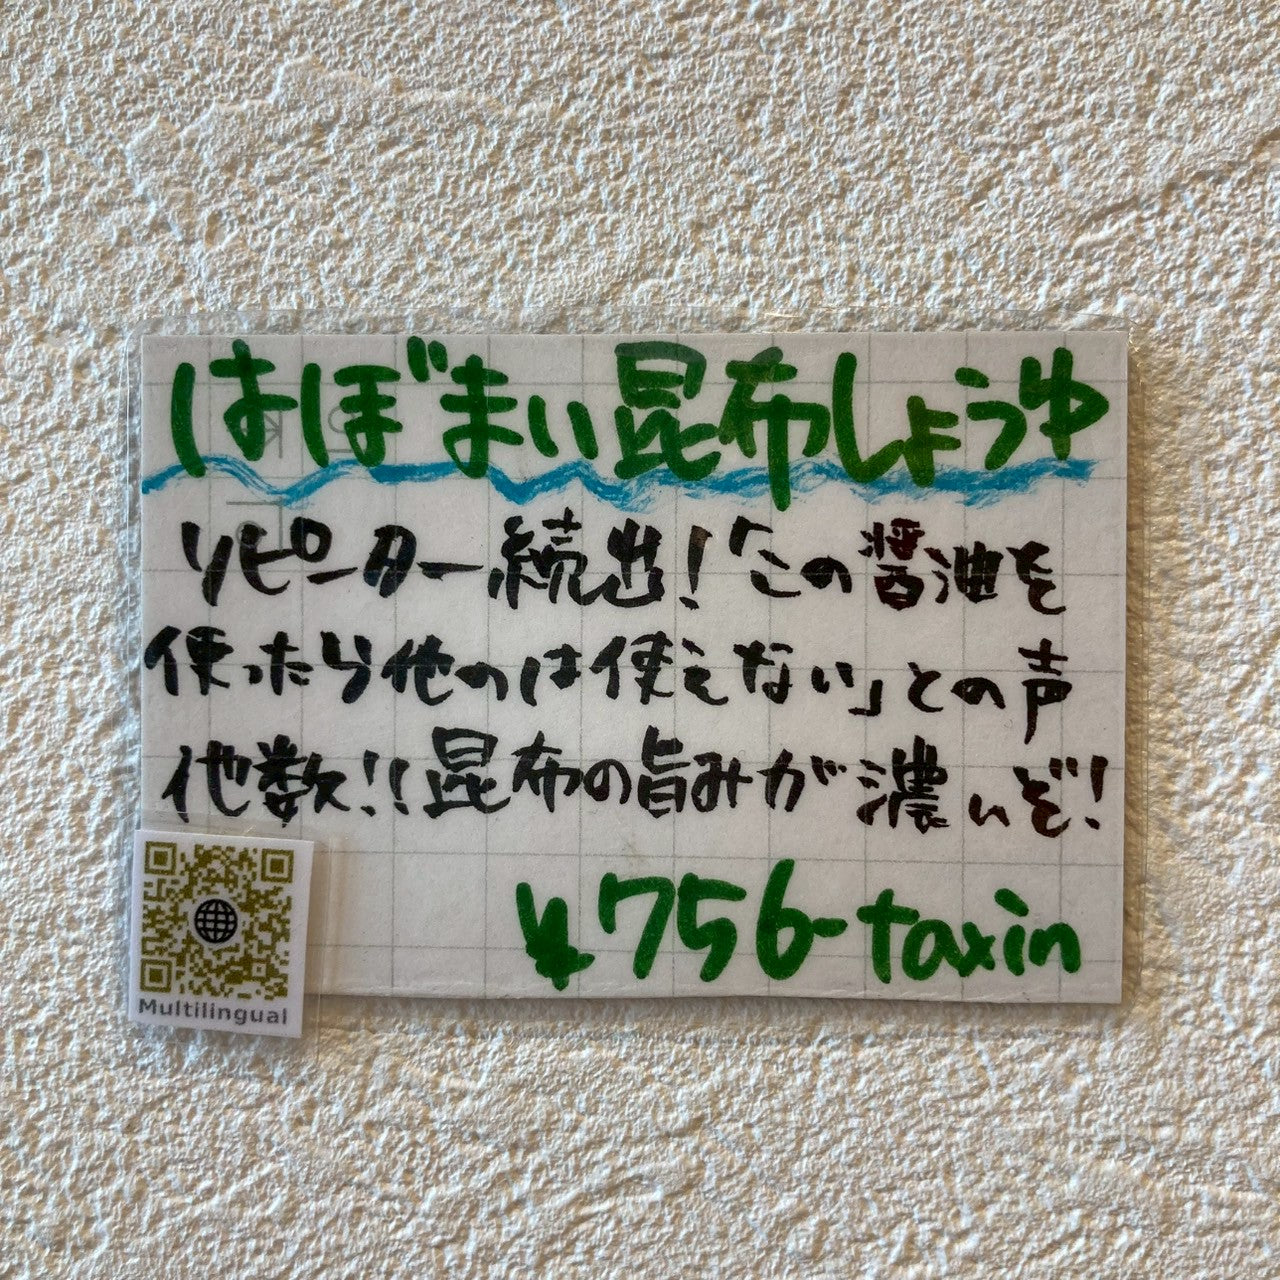 はぼまい昆布しょうゆ
リピーター続出!「この醤油を
使ったら他のは使えない」との声
他数!!昆布の旨みが濃いぞ!
¥756-taxin
Multilingual